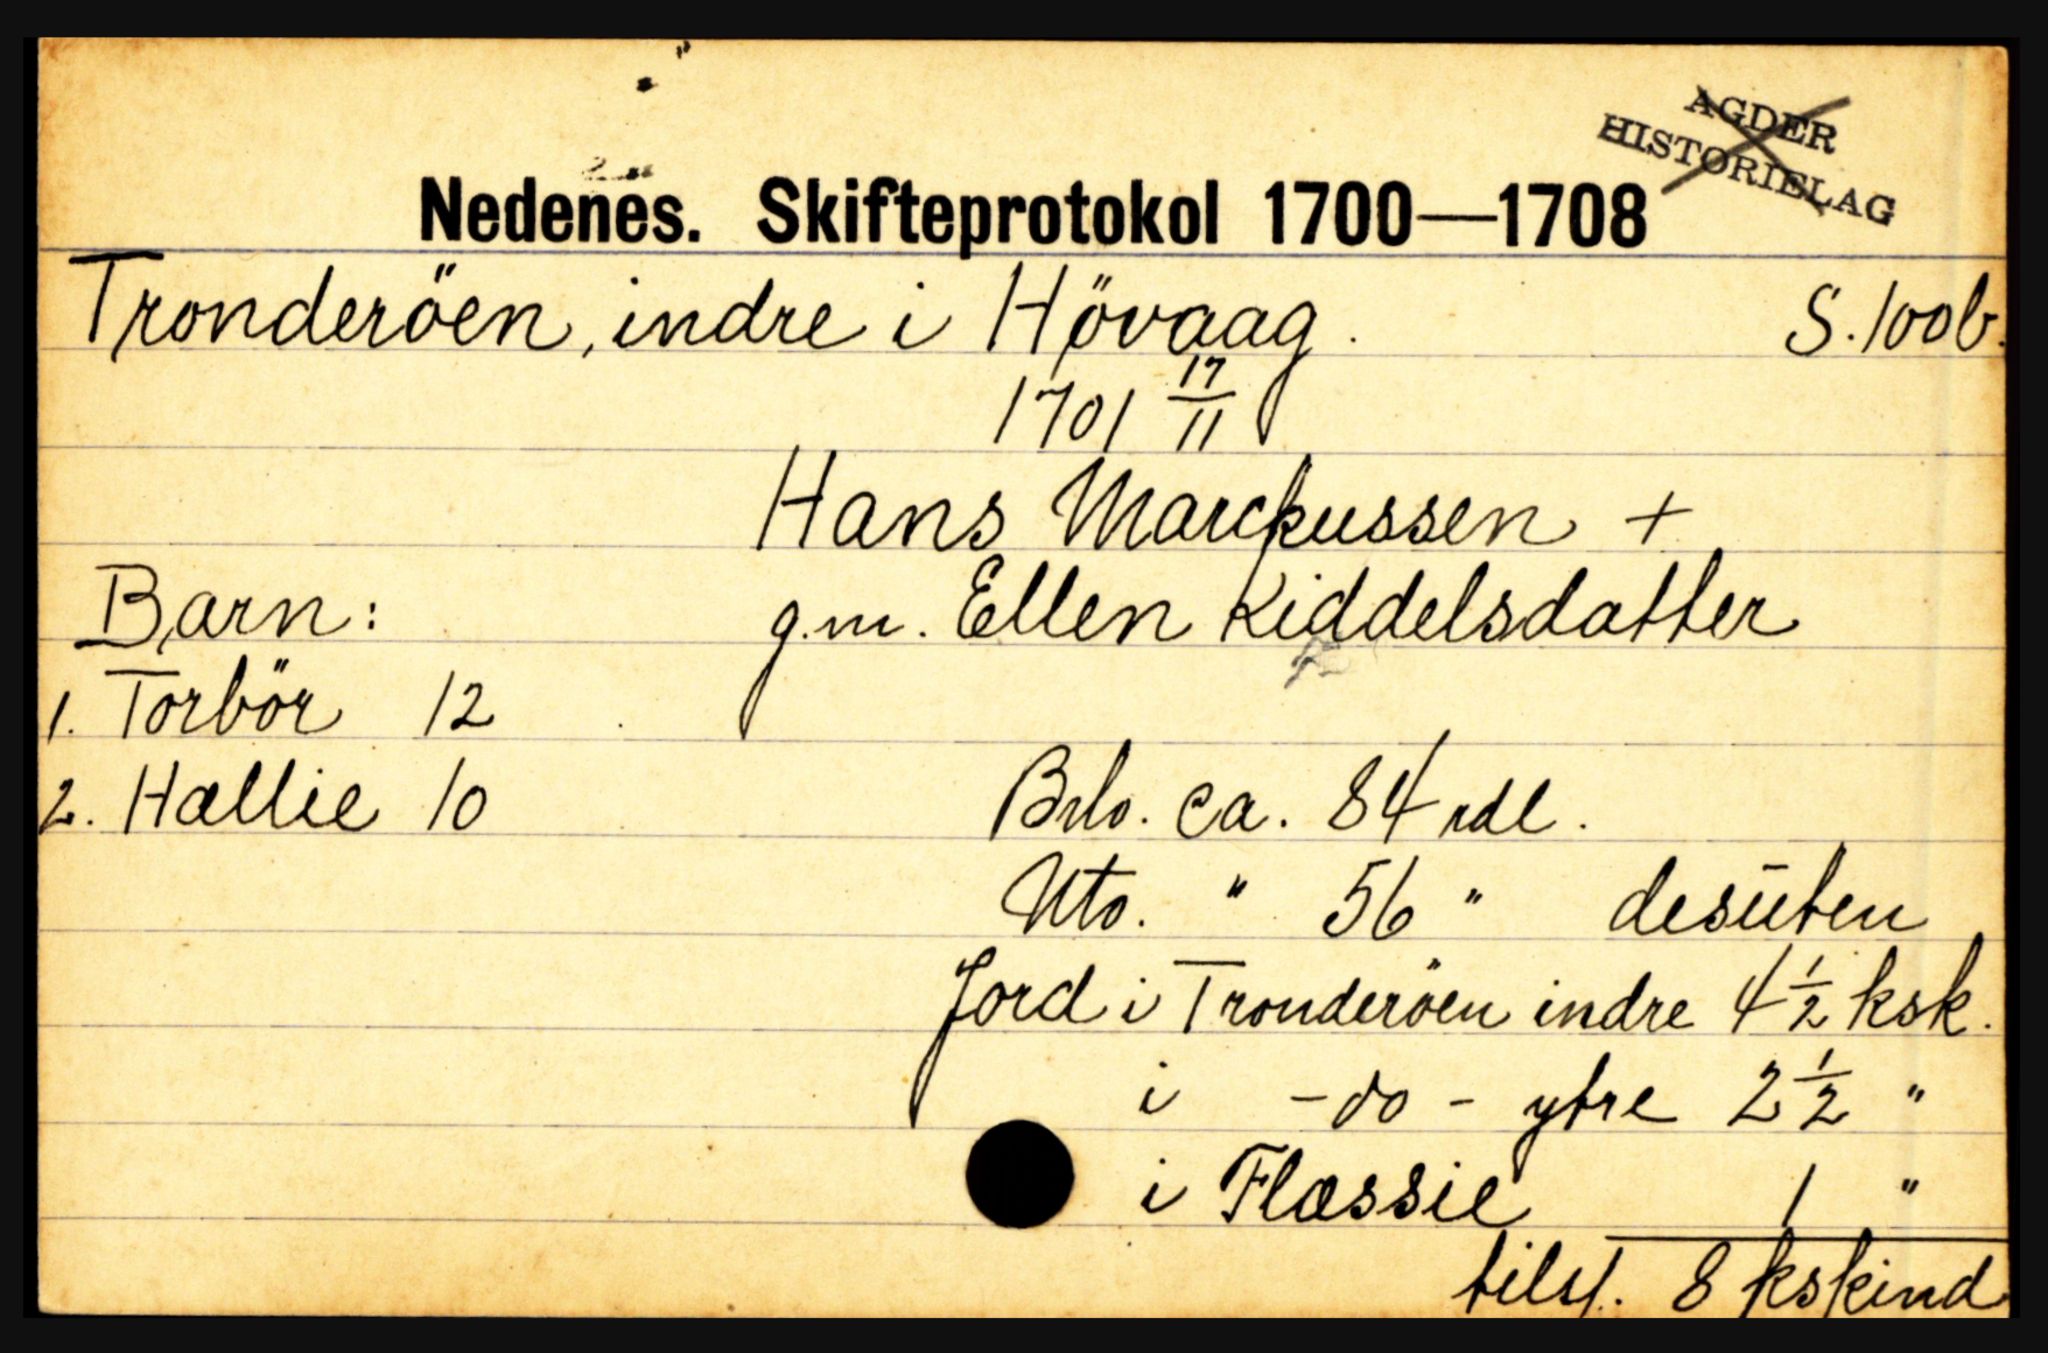 AGDER
HISTORIELAG
Nedenes. Skifteprotokol 1700—1708
Tronderöen, indre i Hövaag. S. 100b.
1701 17/11
Hans Marckussen +
Barn: g.m. Ellen Kiddelsdatter
1. Torbör 12
2. Hællie 10 Brto. ca. 84 rdl.
Nto. " 56 " desūten
Jord i Tronderöen indre 4 1/2 ksk.
i - do - ytre 2 1/2 "
i Flæssie 1 "
tils. 8 kskind